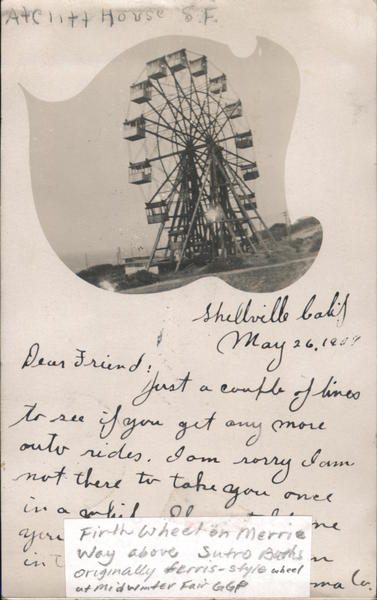 At Cliff House S.F.
Shellville Calif
May 26, 1909
Dear Friend;
Just a couple of lines
to see if you get any more
auto rides. I am sorry I am
not there to take you once
in a while.
Firth Wheel on Merrie
Way above Sutro Baths
originally ferris-style wheel
at Midwinter Fair GGP